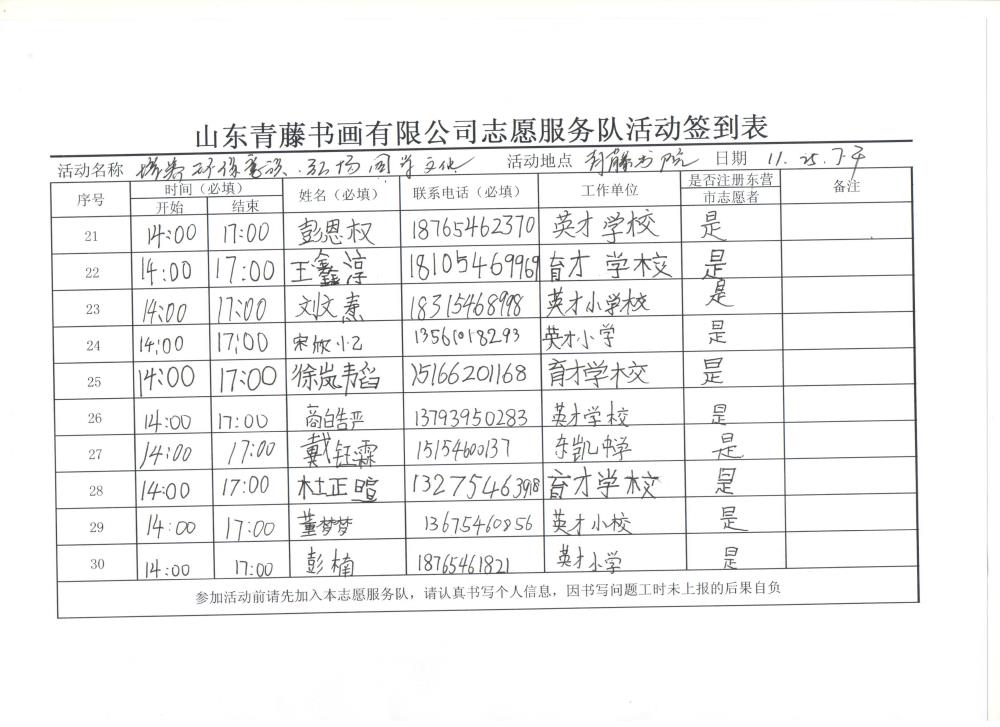 山东青藤书画有限公司志愿服务队活动签到表
活动名称 弘扬国学文化 活动地点 青藤书院 日期 11.25.下午
序号 时间（必填） 姓名（必填） 联系电话（必填） 工作单位 是否注册东营市志愿者 备注
开始 结束
21 14:00 17:00 彭恩权 18765462370 英才学校 是
22 14:00 17:00 王鑫淳 18105469969 育才学校 是
23 14:00 17:00 刘文熹 18315468998 英才小学校 是
24 14:00 17:00 宋欣 13561018293 英才小学 是
25 14:00 17:00 徐岚韬 15166201168 育才学校 是
26 14:00 17:00 商皓严 13793950283 英才学校 是
27 14:00 17:00 戴钰霖 15154600137 东凯中学 是
28 14:00 17:00 杜正暄 13275463918 育才学校 是
29 14:00 17:00 董梦梦 13675460856 英才小校 是
30 14:00 17:00 彭楠 18765461821 英才小学 是
参加活动前请先加入本志愿服务队，请认真书写个人信息，因书写问题工时未上报的后果自负